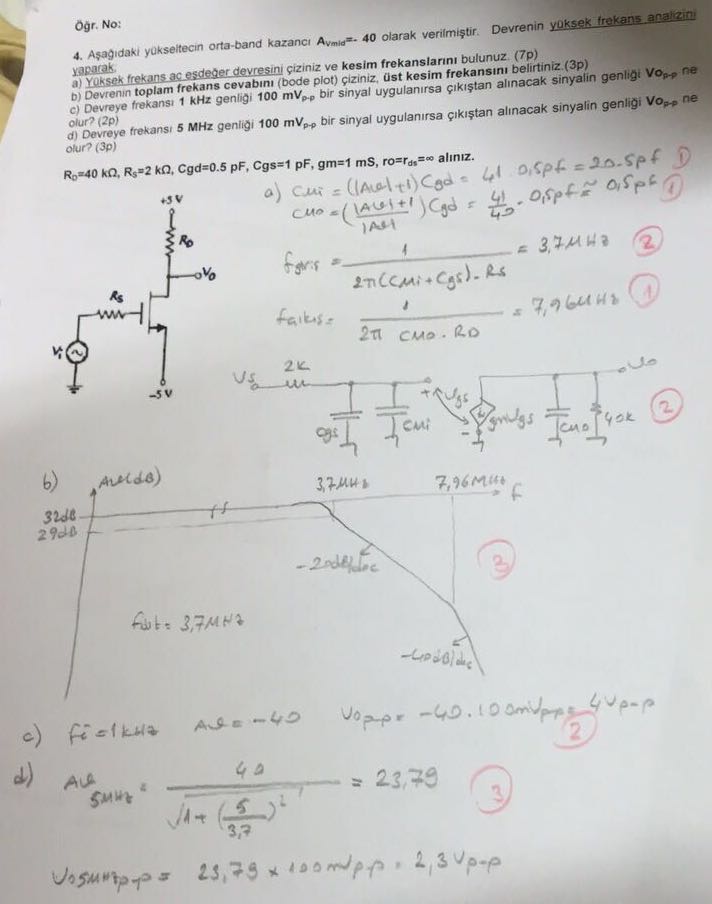 Öğr. No:
4. Aşağıdaki yükseltecin orta-band kazancı Avmid=- 40 olarak verilmiştir. Devrenin yüksek frekans analizini
yaparak;
a) Yüksek frekans ac eşdeğer devresini çiziniz ve kesim frekanslarını bulunuz. (7p)
b) Devrenin toplam frekans cevabını (bode plot) çiziniz, üst kesim frekansını belirtiniz.(3p)
c) Devreye frekansı 1 kHz genliği 100 mVp-p bir sinyal uygulanırsa çıkıştan alınacak sinyalin genliği Vop-p ne
olur? (2p)
d) Devreye frekansı 5 MHz genliği 100 mVp-p bir sinyal uygulanırsa çıkıştan alınacak sinyalin genliği Vop-p ne
olur? (3p)
RD=40 kΩ, RS=2 kΩ, Cgd=0.5 pF, Cgs=1 pF, gm=1 mS, ro=rds=∞ alınız.
a) CMi = (|Av|+1) Cgd = 41 . 0,5pf = 20.5pf 1
CMO = (|Av|+1 / |Av|) Cgd = 41/40 . 0,5pf ≅ 0,5pf 1
fgiriş = 1 / 2π(CMi + Cgs) . Rs = 3,7MHz 2
fçıkış = 1 / 2π CMO . RD = 7,96MHz 1
+5 V
RD
Vo
Rs
Vi
-5 V
Vs 2K + Vgs - gmVgs Vo
Cgs CMi CMO 40K 2
b) Av(dB) 3,7MHz 7,96MHz f
32dB
29dB
-20dB/dec 3
füst = 3,7MHz
-40dB/dec
c) fi = 1kHz Av = -40 Vop-p = -40.100mVp-p = 4Vp-p
2
d) Av 5MHz = 40 / √1 + (5/3,7)² = 23,79 3
Vo5MHzp-p = 23,79 x 100mVp-p = 2,3Vp-p